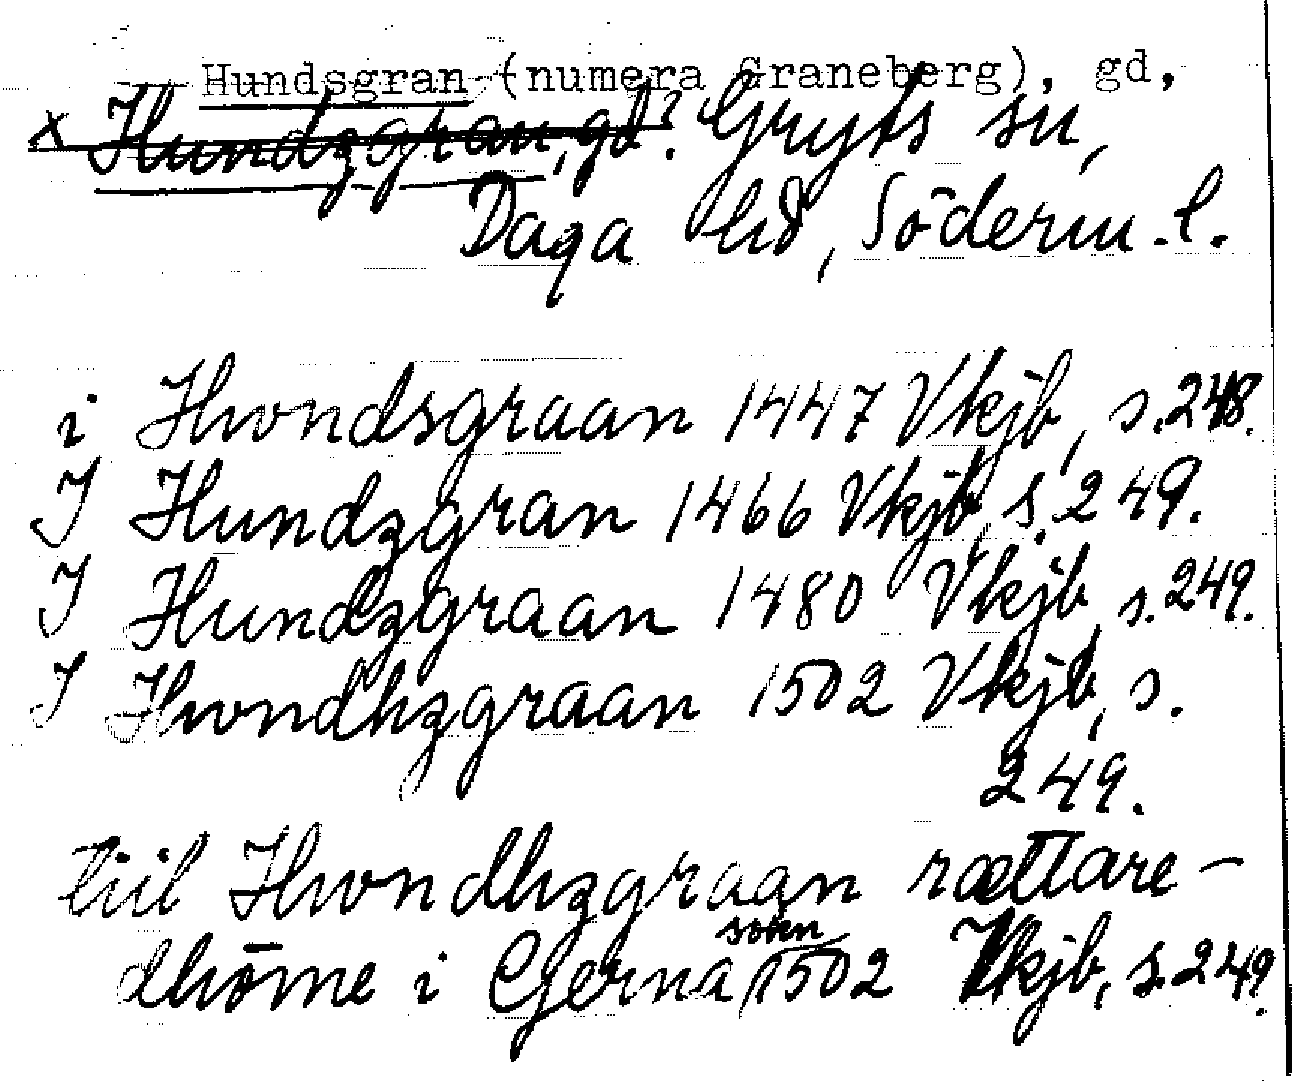 Hundsgran (numera Graneberg), gd,
x Hundzgran, gd? Gryts sn,
Daga hd, Söderm. l.
i Hwondsgraan 1447 Vkjb, s. 248.
J Hundzgran 1466 Vkjb, s. 249.
J Hundzgraan 1480 Vkjb, s. 249.
J Hwondhzgraan 1502 Vkjb, s.
249.
tiil Hwondhzgraan rættare-
dhöme i Gerna sokn 1502 Vkjb, s. 249.